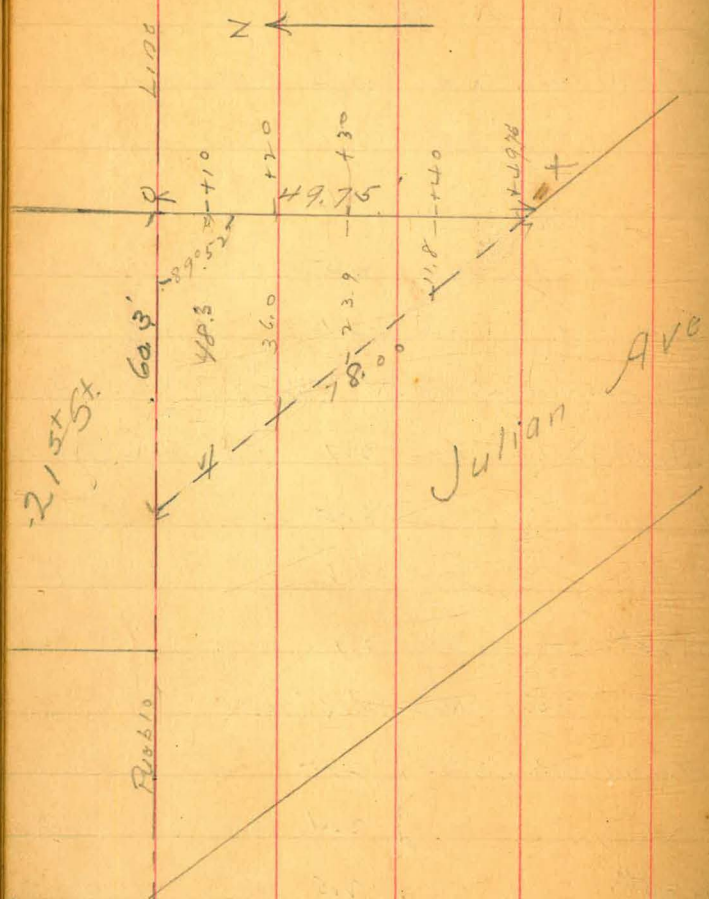 N
Line
+10
+20
+30
+40
+49.75
49.75'
89° 52'
60.3'
48.3
36.0
23.9
11.8
78.00
21st St.
Julian Ave
Pueblo